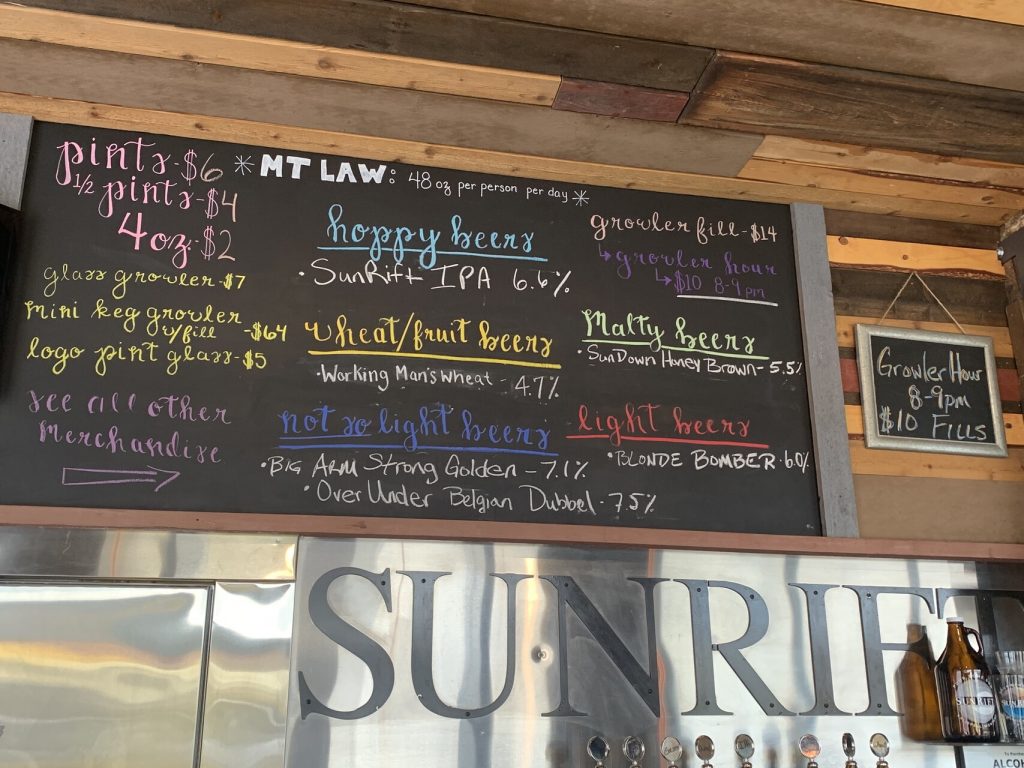 pints-$6
1/2 pints-$4
4oz-$2
glass growler-$7
mini keg growler
w/fill -$64
logo pint glass-$5
see all other
merchandise
*MT LAW: 48 oz per person per day*
hoppy beers
·SunRift IPA 6.6%
wheat/fruit beers
·Working Man's Wheat - 4.7%
not so light beers
·Big Arm Strong Golden - 7.1%
·Over Under Belgian Dubbel - 7.5%
growler fill-$14
growler hour
$10 8-9pm
Malty beers
·SunDown Honey Brown - 5.5%
light beers
·BLONDE BOMBER · 6.0%
Growler Hour
8-9pm
$10 Fills
SUNRIFT
SUNRIFT
ALCOH